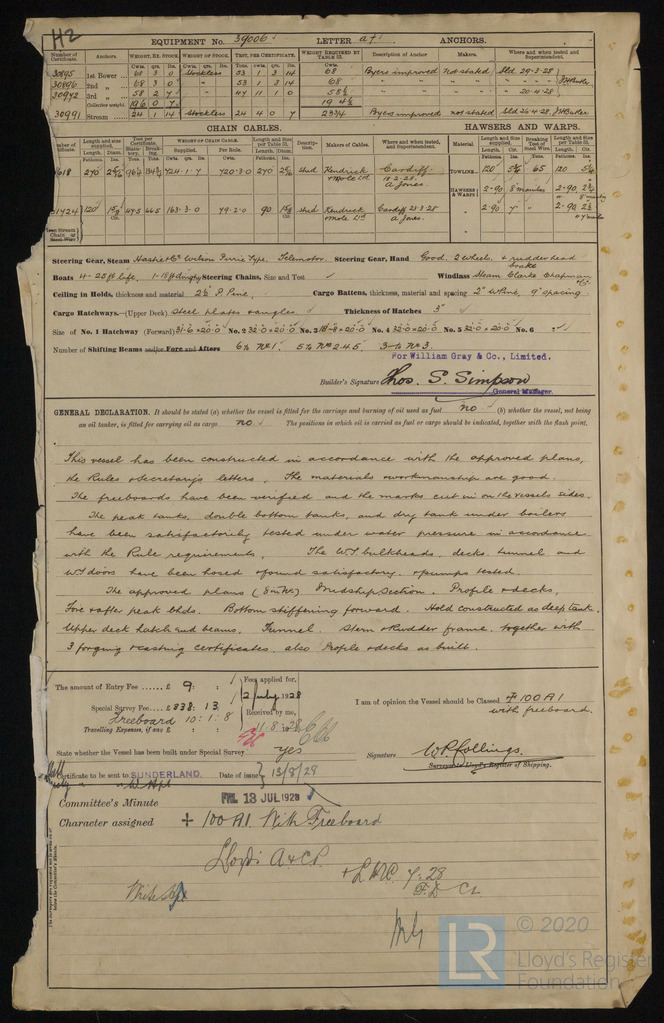 H2
EQUIPMENT No. 39006 LETTER a† ANCHORS.
Number of Certificate. Anchors. WEIGHT, EX. STOCK. WEIGHT OF STOCK. TEST, PER CERTIFICATE. WEIGHT REQUIRED BY TABLE 53. Description of Anchor Makers. Where and when tested and Superintendent.
Cwts. qrs. lbs. Cwts. qrs. lbs. Tons. cwts. qrs. lbs. Cwts.
30895 1st Bower 68 3 0 Stockless 53 1 3 14 68 Byers improved Not stated Sld 29-3-28
30896 2nd " 68 3 0 " 53 1 3 14 68 " " " "
30942 3rd " 58 2 7 " 47 11 1 0 58½ " " " 20-4-28
Collective weight. 196 0 7 194½
30991 Stream 24 1 14 Stockless 24 4 0 7 23¼ Byers improved not stated Sld 26-4-28
CHAIN CABLES. HAWSERS AND WARPS.
Length and size supplied. Test per Certificate WEIGHT OF CHAIN CABLE. Length and Size per Table 53. Makers of Cables. Where and when tested, and Superintendent. Material Length and Size supplied. Breaking Test of Steel Wire. Length and Size per Table 53.
Supplied. Per Rule.
270 724-1-7 720-3-0 270 stud Kendrick & Mole Ltd Cardiff 18-2-28 A Jones. TOWLINE 120 65 120
HAWSERS & WARPS 2-90 8" manila 2-90
1424 120 47.5 66.5 163-3-0 79-2-0 90 stud Kendrick & Mole Ltd Cardiff 23-3-28 A Jones. 2-90 7 " 2-90
Steering Gear, Steam Hastie & Co Wilson Pirrie Type. Telemotor. Steering Gear, Hand Good, 2 wheels, & rudder head brake
Boats 4 - 25ft life, 1-18ft dinghy Steering Chains, Size and Test ✓ Windlass Steam Clarke Chapman & Co.
Ceiling in Holds, thickness and material 2½ P. Pine. Cargo Battens, thickness, material and spacing 2" W Pine, 9" spacing.
Cargo Hatchways.—(Upper Deck) Steel plates & angles ✓ Thickness of Hatches 3" ✓
Size of No. 1 Hatchway (Forward) 31-6 × 20-0 No. 2 32-0 × 20-0 No. 3 18-8 × 20-0 No. 4 32-0 × 20-0 No. 5 32-0 × 20-0 No. 6 ✓
Number of Shifting Beams and/or Fore and Afters 6 to No 1. 5 to Nos 2.4.5. 3 to No 3.
For William Gray & Co., Limited.
Builder's Signature Thos. S. Simpson
General Manager.
GENERAL DECLARATION. It should be stated (a) whether the vessel is fitted for the carriage and burning of oil used as fuel no ✓ (b) whether the vessel, not being
an oil tanker, is fitted for carrying oil as cargo no ✓ The positions in which oil is carried as fuel or cargo should be indicated, together with the flash point.
This vessel has been constructed in accordance with the approved plans,
the Rules & Secretary's letters. The materials & workmanship are good.
The freeboards have been verified and the marks cut in on the vessels sides.
The peak tanks, double bottom tanks, and dry tank under boilers
have been satisfactorily tested under water pressure in accordance
with the Rule requirements. The WT bulkheads, decks, tunnel and
WT doors have been hosed & found satisfactory. & pumps tested.
The approved plans (8 in No) Midship Section. Profile & decks,
Fore & after peak bhds. Bottom stiffening forward. Hold constructed as deep tank.
Upper deck hatch end beams. Tunnel. Stern & Rudder frame. together with
3 forging & casting certificates. also Profile & decks as built.
The amount of Entry Fee ...... £ 9 : : Fees applied for,
2 July 1928
Special Survey Fee.... £ 838 : 13 :
Freeboard 10 : 1 : 8 Received by me,
Travelling Expenses, if any £ : : 11.8.1928
I am of opinion the Vessel should be Classed ✠ 100A1
with freeboard.
State whether the Vessel has been built under Special Survey Yes
Signature W. P. Collings.
Surveyor to Lloyd's Register of Shipping.
Certificate to be sent to SUNDERLAND. Date of issue 13/8/28
Committee's Minute FRI. 13 JUL 1928
Character assigned + 100A1 With Freeboard
Lloyd's A & CP.
+ LMC 7.28
F.D. CL
The Surveyors are requested not to write on or below the Committee's Minute.
LR
© 2020
Lloyd's Register
Foundation